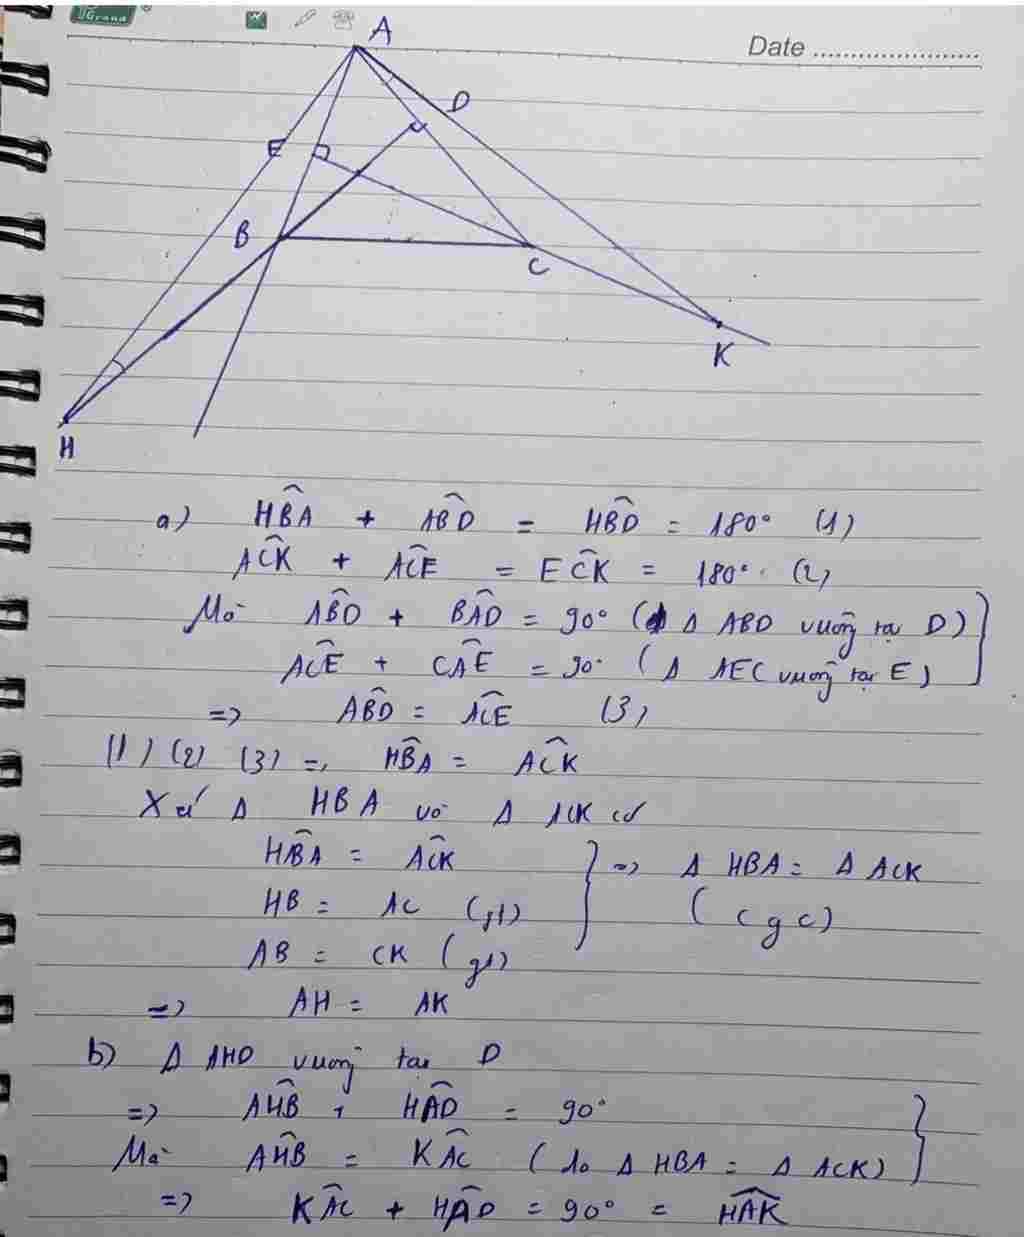 Grand
Date
A
D
E
B
C
K
H
a) HBA + ABD = HBD = 180° (1)
ACK + ACE = ECK = 180° (2)
Mà ABD + BAD = 90° (Δ ABD vuông tại D)
ACE + CAE = 90° (Δ AEC vuông tại E)
=> ABD = ACE (3)
(1) (2) (3) => HBA = ACK
Xét Δ HBA và Δ ACK có
HBA = ACK
HB = AC (gt)
AB = CK (gt)
=> Δ HBA = Δ ACK
(c g c)
=> AH = AK
b) Δ AHD vuông tại D
=> AHB + HAD = 90°
Mà AHB = KAC (do Δ HBA = Δ ACK)
=> KAC + HAD = 90° = HAK